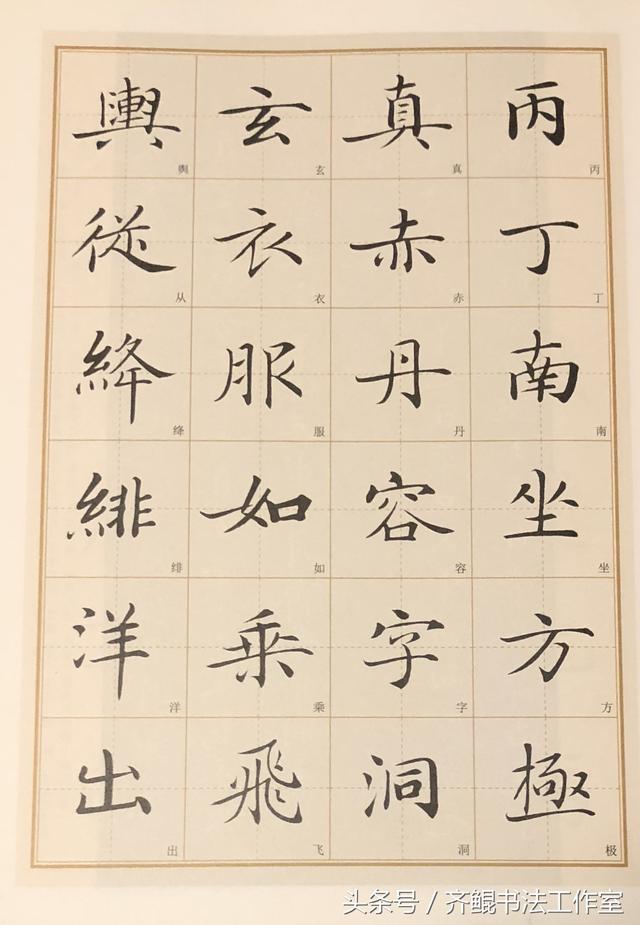 丙丁南坐方極
丙丁南坐方极
真赤丹容字洞
真赤丹容字洞
玄衣服如乗飛
玄衣服如乘飞
輿從絳緋洋出
舆从绛绯洋出
头条号 / 齐鲲书法工作室